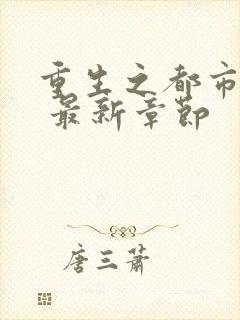 重生之都市
最新章节
唐三萧